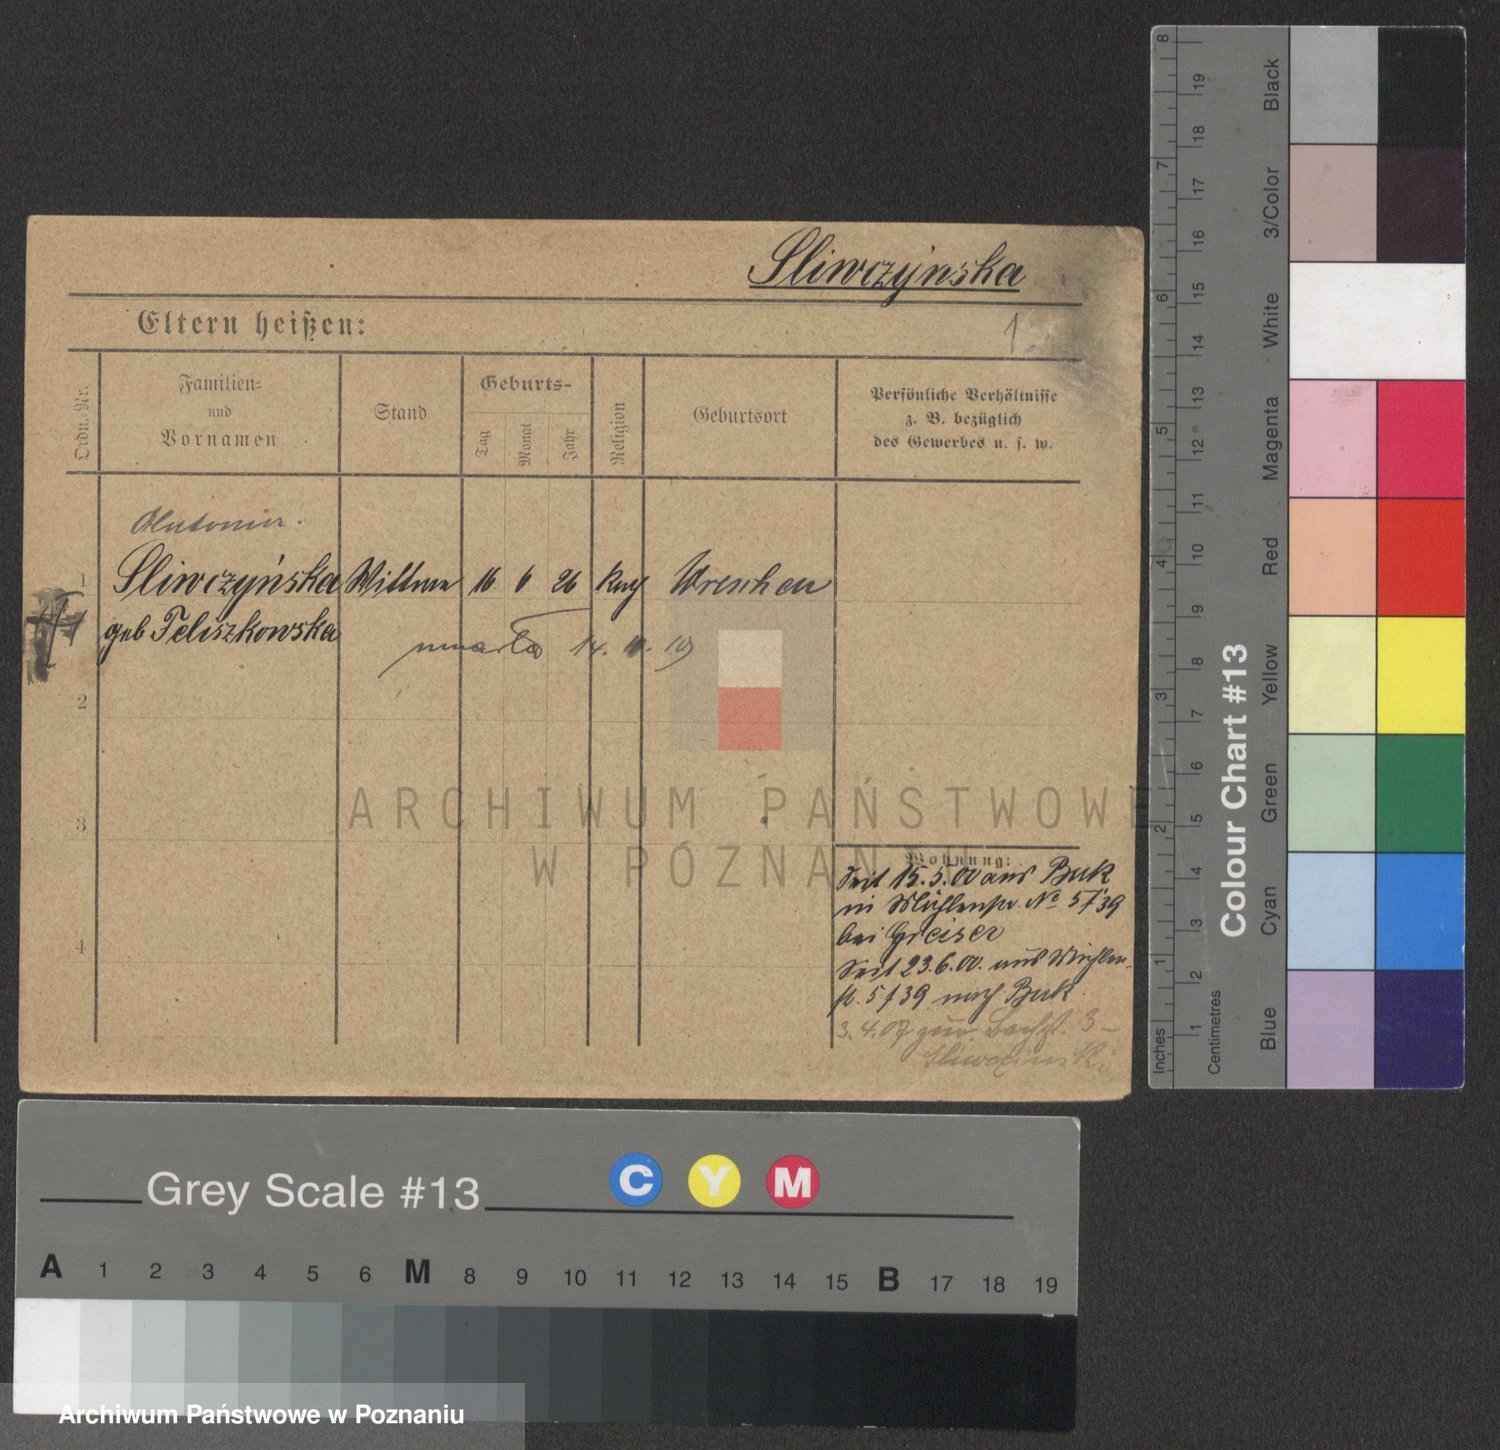 Sliwczyńska
1
Eltern heißen:
Ordn.-Nr.
Familien-
und
Vornamen
Stand
Geburts-
Tag
Monat
Jahr
Religion
Geburtsort
Persönliche Verhältnisse
z. B. bezüglich
des Gewerbes u. s. w.
1 Sliwczyńska Wittwe 16. 6 26 kath Wreschen
geb Feliszkowska
umarła 14. 19
2
3
4
Wohnung:
Seit 15.5.00 aus Buk
in Mühlenstr. No 5/39
bei Greiser
Seit 23.6.00. aus Mühlen-
str. 5/39 nach Buk.
3.4.07 zur 3-
Sliwczinski
ARCHIWUM PAŃSTWOWE
W POZNANIU
Grey Scale #13
C Y M
A 1 2 3 4 5 6 M 8 9 10 11 12 13 14 15 B 17 18 19
Archiwum Państwowe w Poznaniu
Colour Chart #13
Inches 1 2 3 4 5 6 7 8
Centimetres 1 2 3 4 5 6 7 8 9 10 11 12 13 14 15 16 17 18 19
Blue Cyan Green Yellow Red Magenta White 3/Color Black